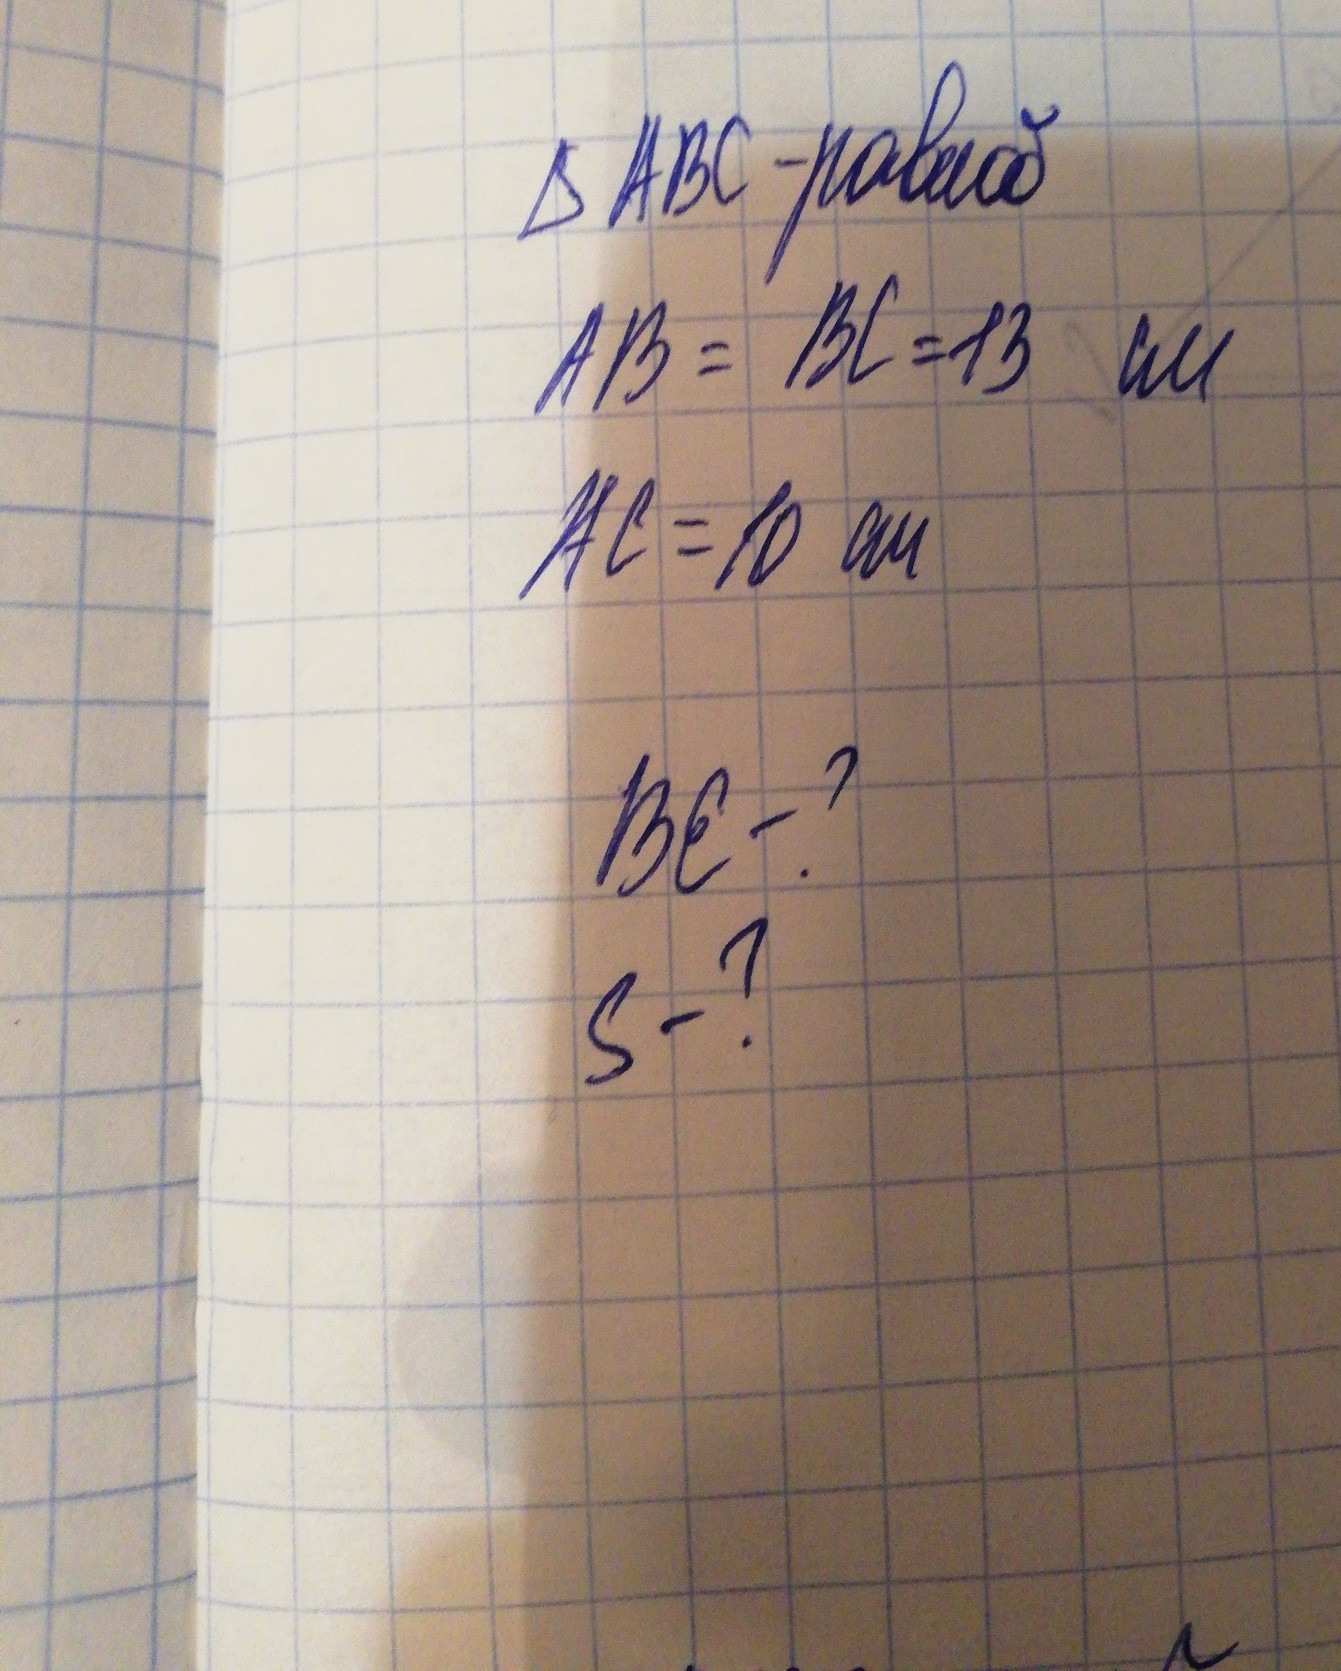 Δ ABC - равноб
AB = BC = 13 см
AC = 10 см
BE - ?
S - ?